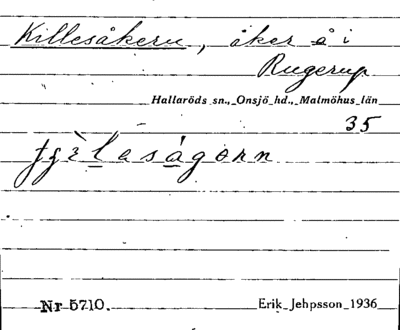 Killesåkern, åker å i
Rugerup
Hallaröds sn., Onsjö hd., Malmöhus län
35
Nr 5710.
Erik Jehpsson 1936